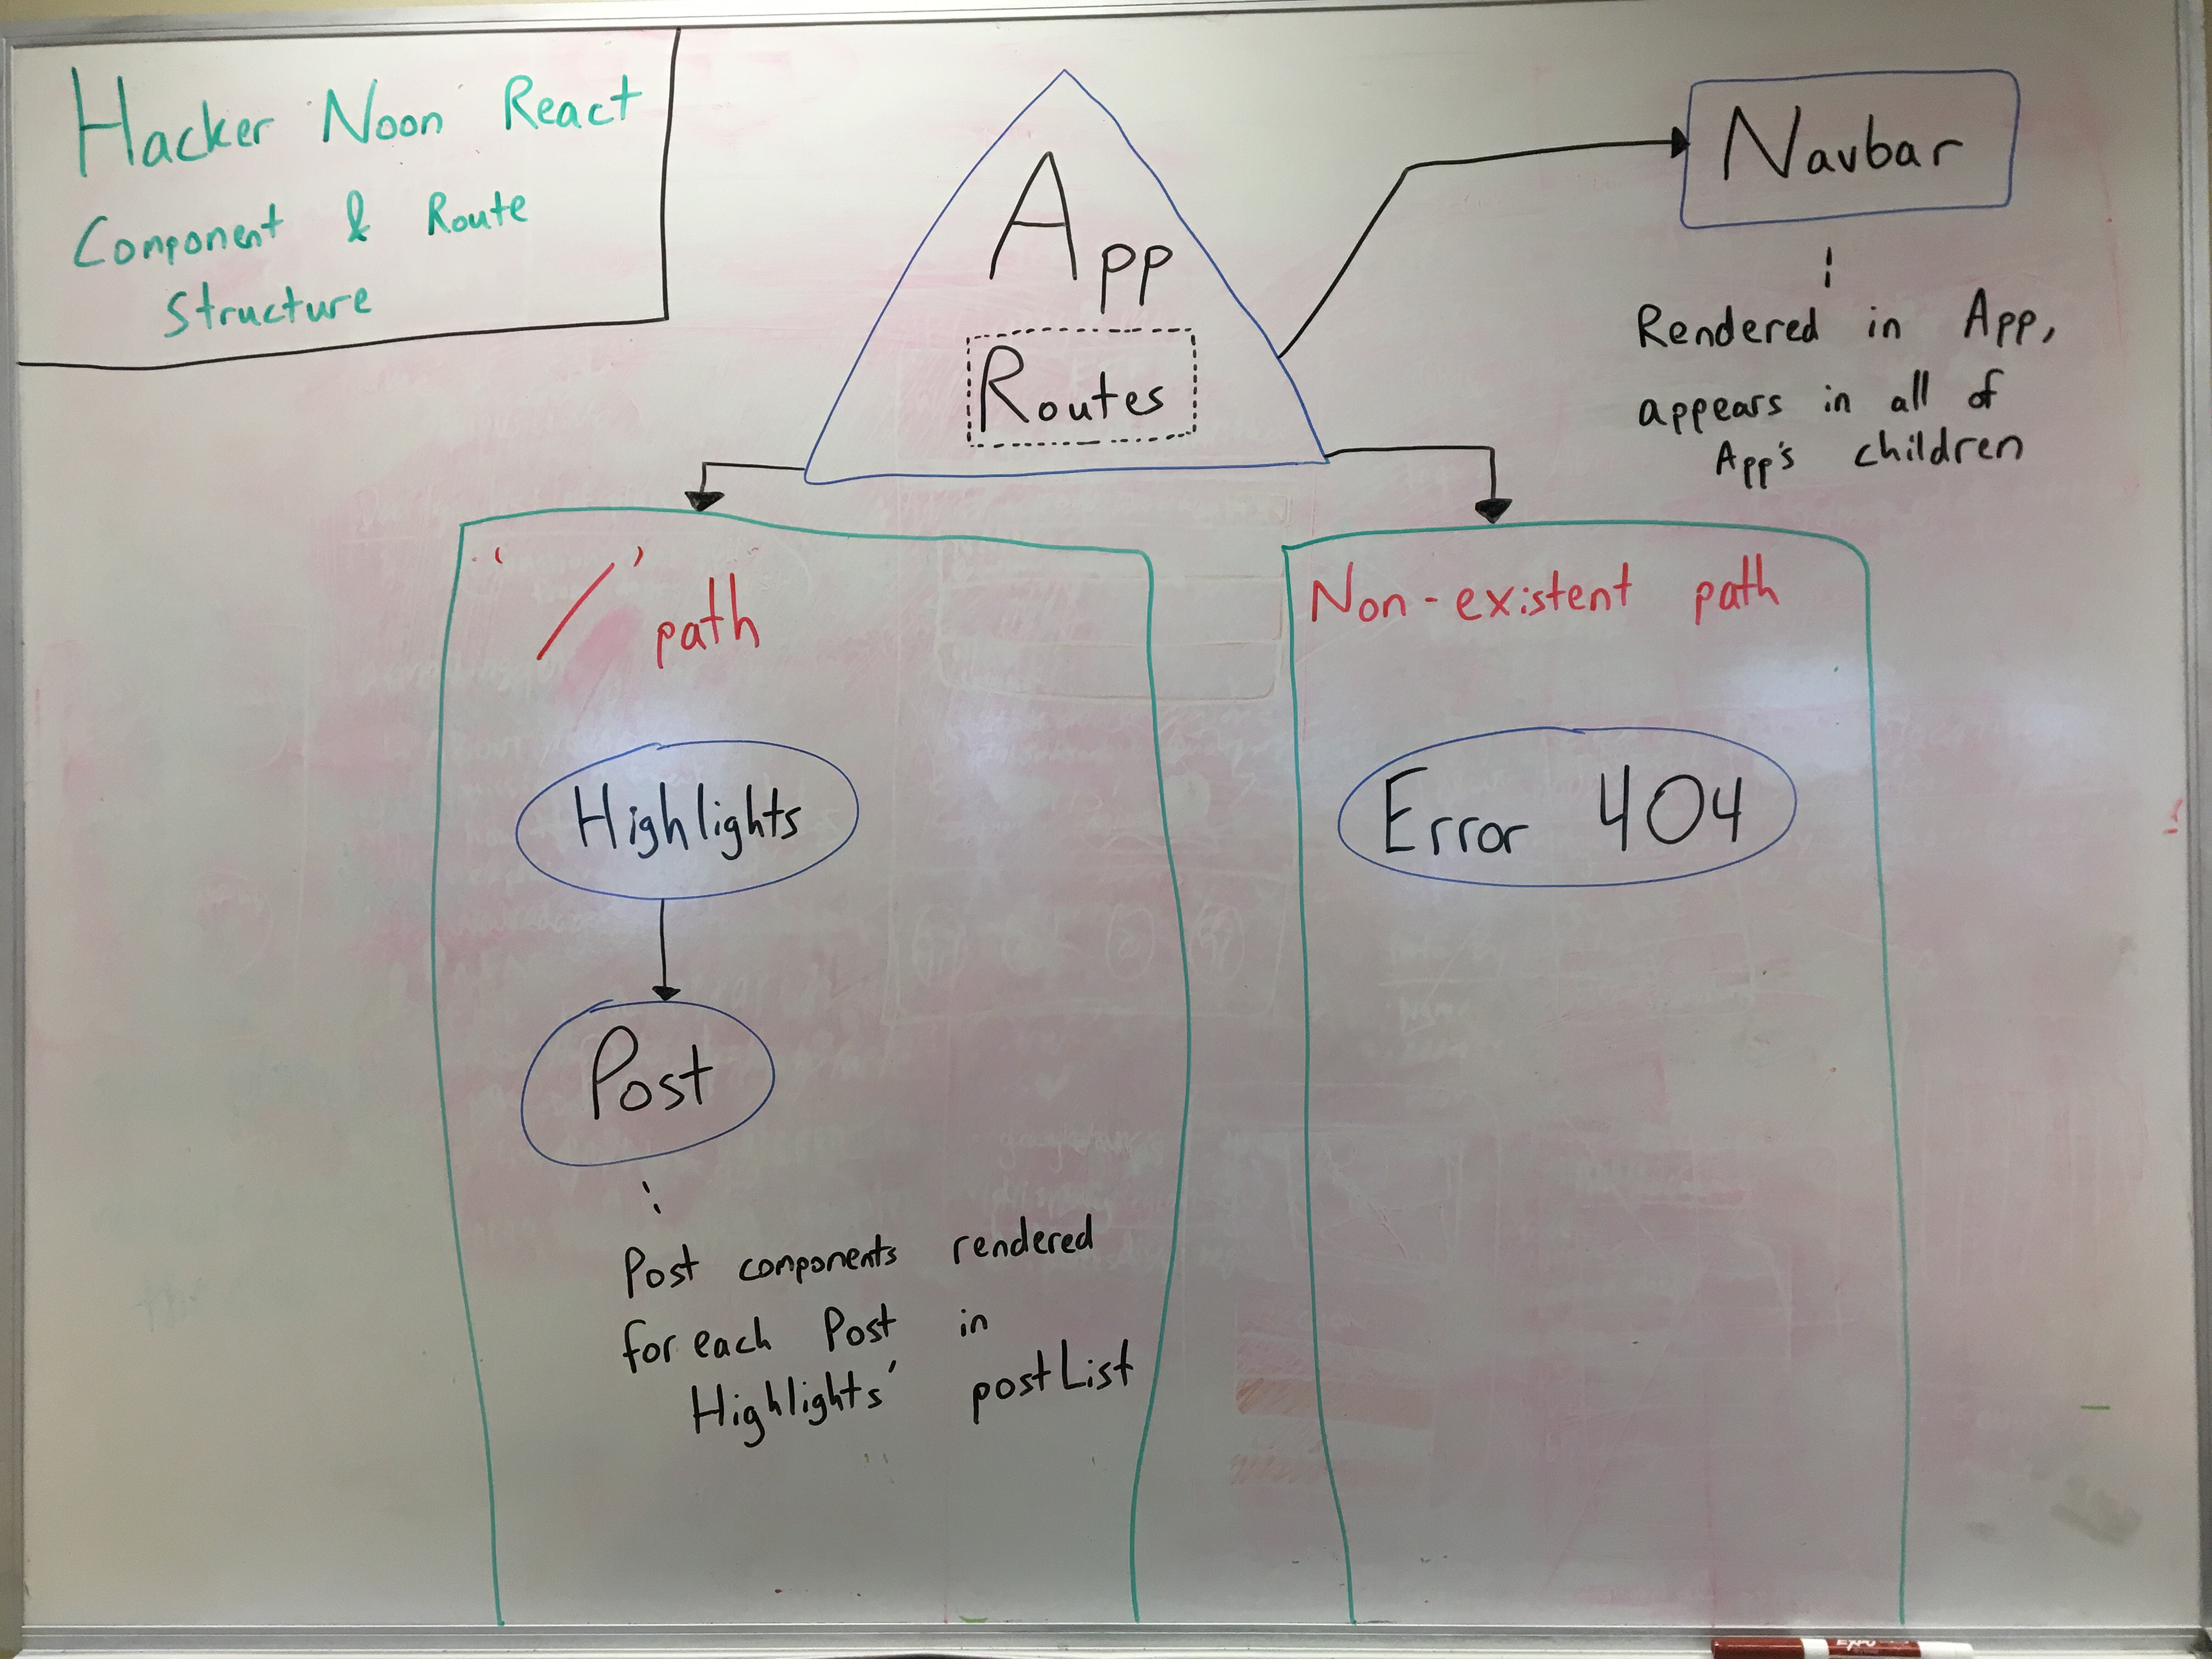 Hacker Noon React
Component & Route
Structure
App
Routes
Navbar
Rendered in App,
appears in all of
App's children
'/' path
Highlights
Post
Post components rendered
for each Post in
Highlights' postList
Non-existent path
Error 404
EXPO